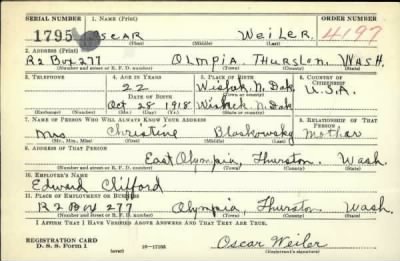 SERIAL NUMBER 1. NAME (Print) ORDER NUMBER
1795 Oscar Weiler 4197
(First) (Middle) (Last)
2. ADDRESS (Print)
R2 Box 277 Olmpia Thurston, Wash.
(Number and street or R. F. D. number) (Town) (County) (State)
3. TELEPHONE 4. AGE IN YEARS 5. PLACE OF BIRTH 6. COUNTRY OF CITIZENSHIP
22 N. Dak. U.S.A.
DATE OF BIRTH (Town or county)
Oct 28 1918 Wishek N. Dak
(Exchange) (Number) (Mo.) (Day) (Yr.) (State or country)
7. NAME OF PERSON WHO WILL ALWAYS KNOW YOUR ADDRESS 8. RELATIONSHIP OF THAT PERSON
Mrs Christine Blaskowsky Mother
(Mr., Mrs., Miss) (First) (Middle) (Last)
9. ADDRESS OF THAT PERSON
East Olympia, Thurston. Wash.
(Number and street or R. F. D. number) (Town) (County) (State)
10. EMPLOYER'S NAME
Edward Clifford
11. PLACE OF EMPLOYMENT OR BUSINESS
R2 Box 277 Olympia, Thurston Wash.
(Number and street or R. F. D. number) (Town) (County) (State)
I AFFIRM THAT I HAVE VERIFIED ABOVE ANSWERS AND THAT THEY ARE TRUE.
REGISTRATION CARD
D. S. S. Form 1 (over) 16-17105 Oscar Weiler
(Registrant's signature)